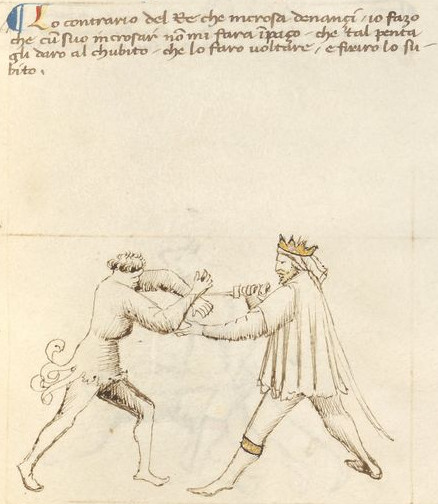 Lo contrario del Re che incrosa denançi, io fazo
che cū suo incrosar nō mi fara īpaço. che tal penta
gli daro al chubito. che lo faro voltare, e firiro lo su-
bito.